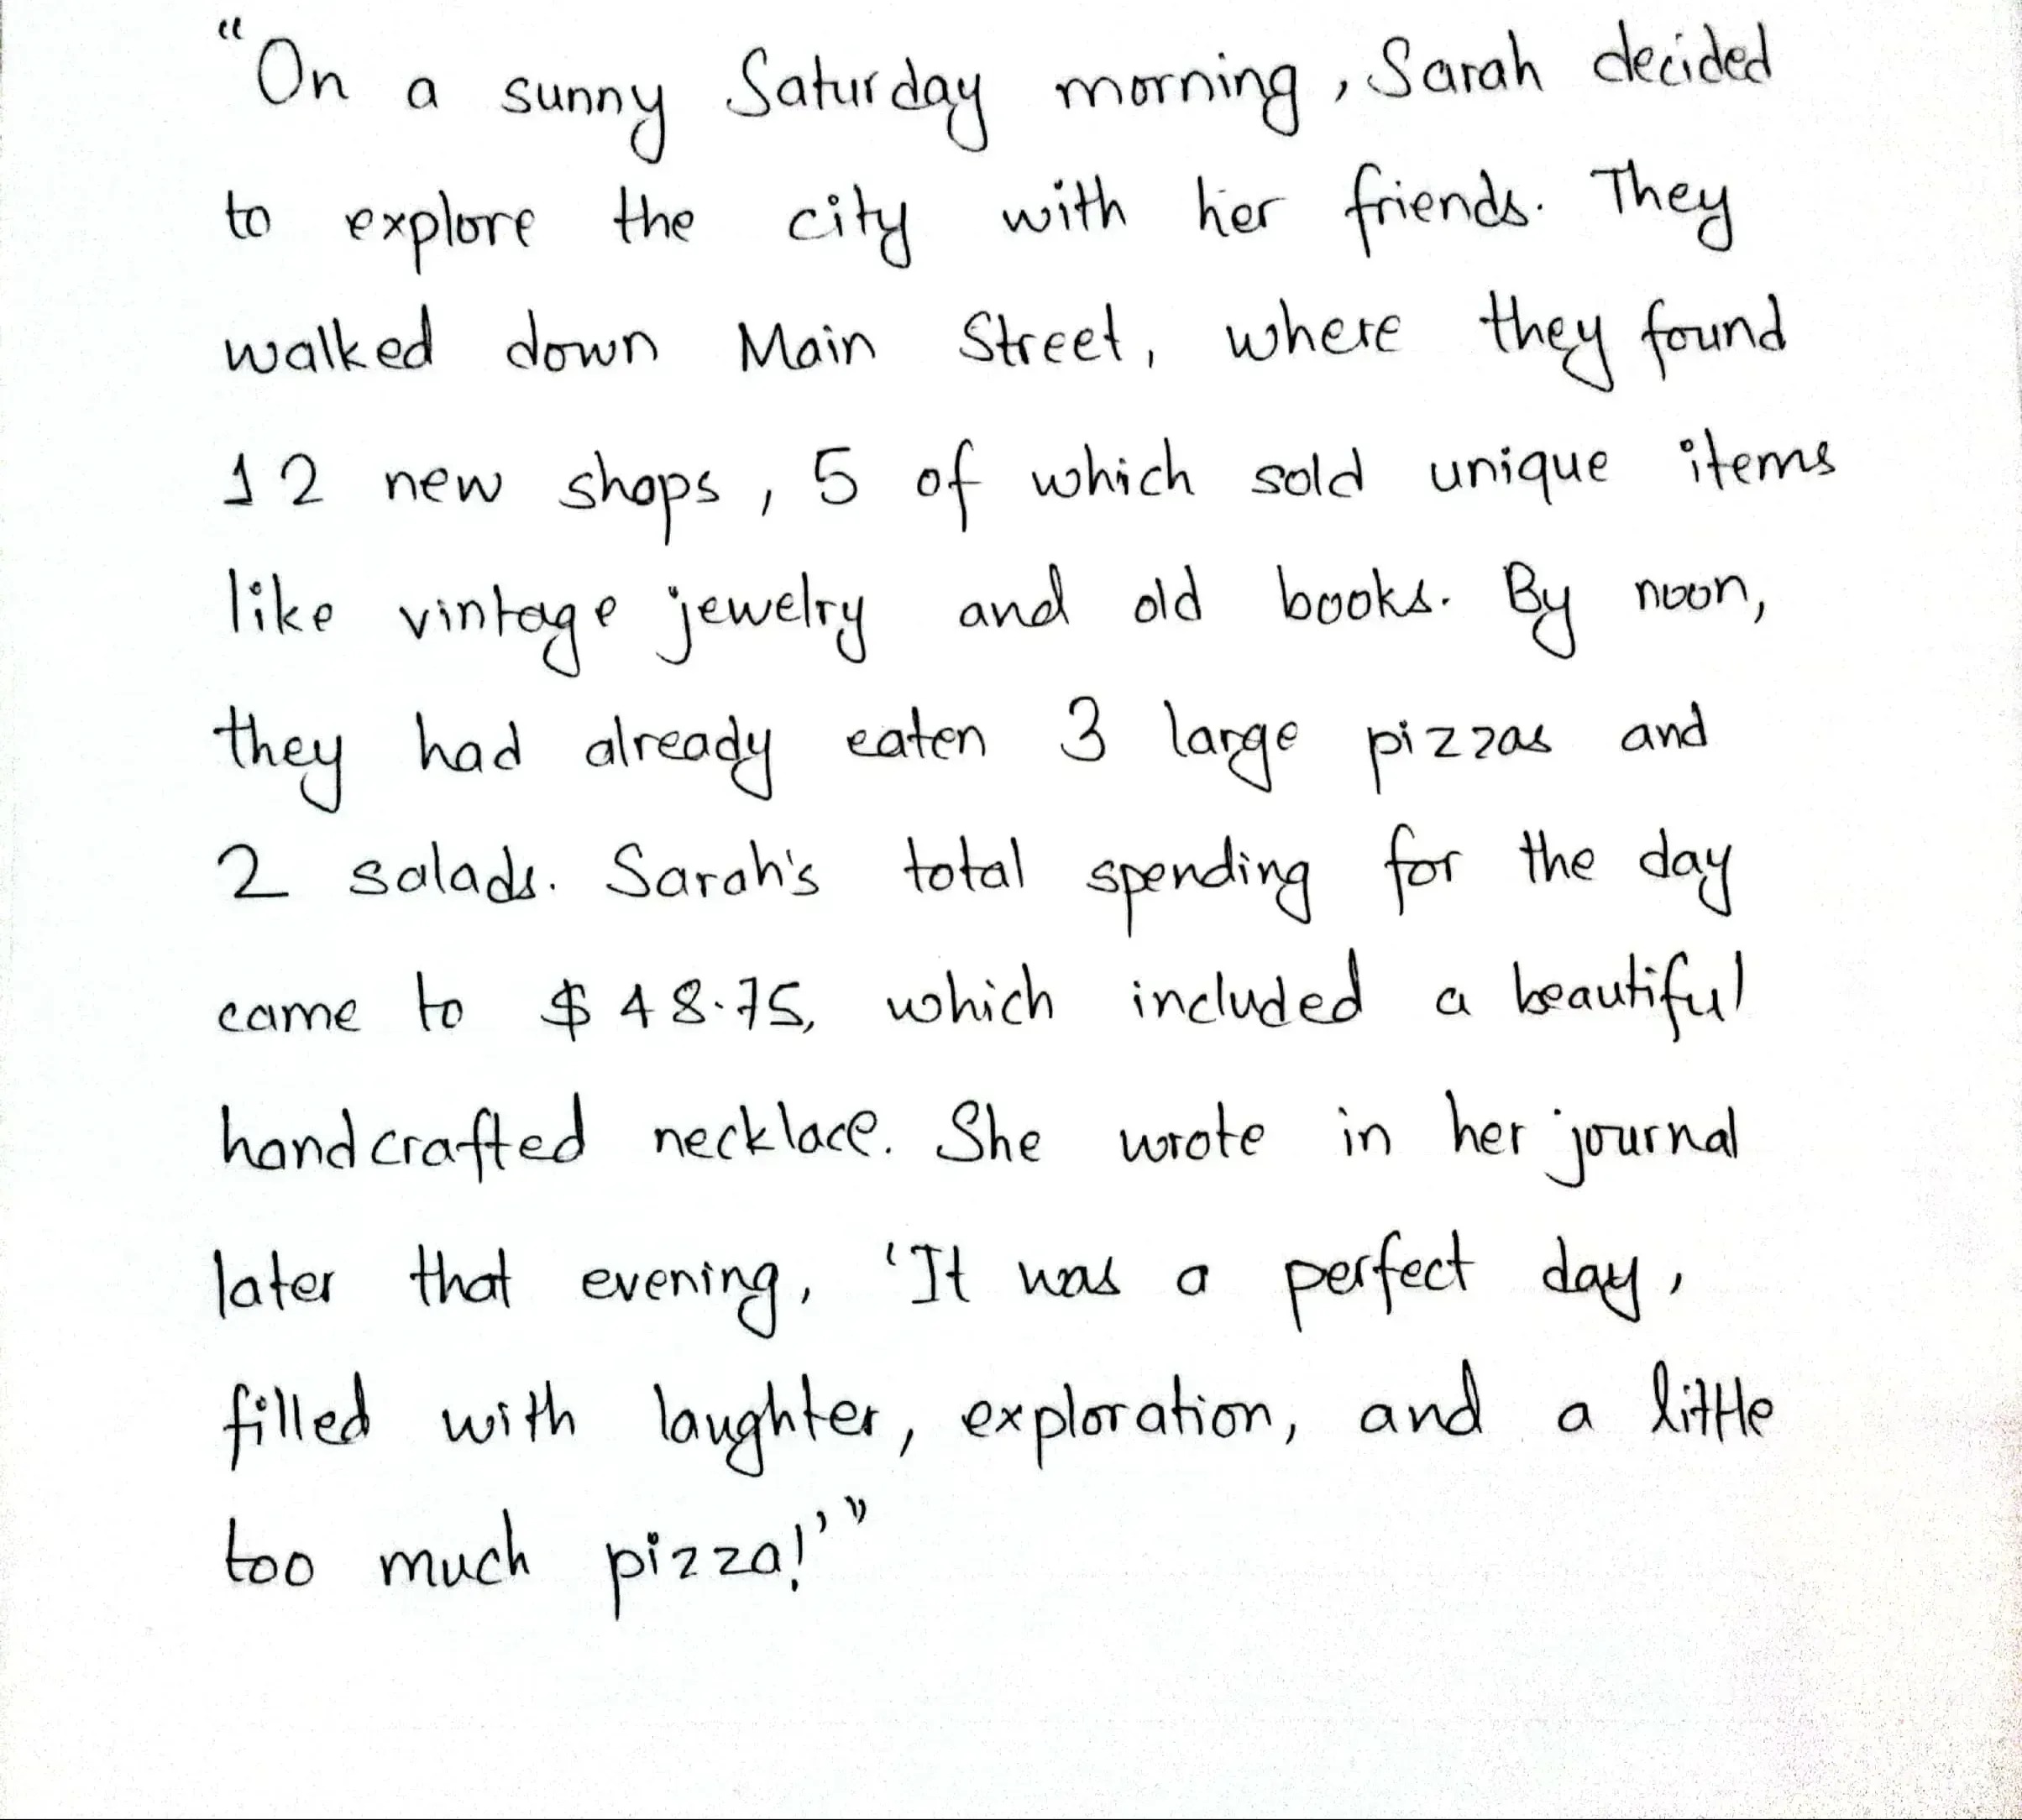 "On a sunny Saturday morning, Sarah decided
to explore the city with her friends. They
walked down Main Street, where they found
12 new shops, 5 of which sold unique items
like vintage jewelry and old books. By noon,
they had already eaten 3 large pizzas and
2 salads. Sarah's total spending for the day
came to $48.75, which included a beautiful
handcrafted necklace. She wrote in her journal
later that evening, 'It was a perfect day,
filled with laughter, exploration, and a little
too much pizza!'"